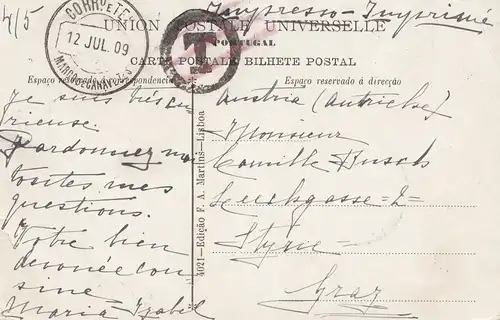 4/5
Impresso-Imprimé
UNION POSTALE UNIVERSELLE
PORTUGAL
CARTE POSTALE BILHETE POSTAL
12 JUL. 09
T
Espaço reservado á correspondencia
Je suis très cu
rieuse.
Pardonnez moi
toutes mes
questions.
Votre bien
devouée cou
sine
Maria Izabel
4021-Edição F. A. Martins-Lisboa
Espaço reservado á direcção
Austria (Autriche)
Monsieur
Camille Busch
=2=
Styrie
Graz